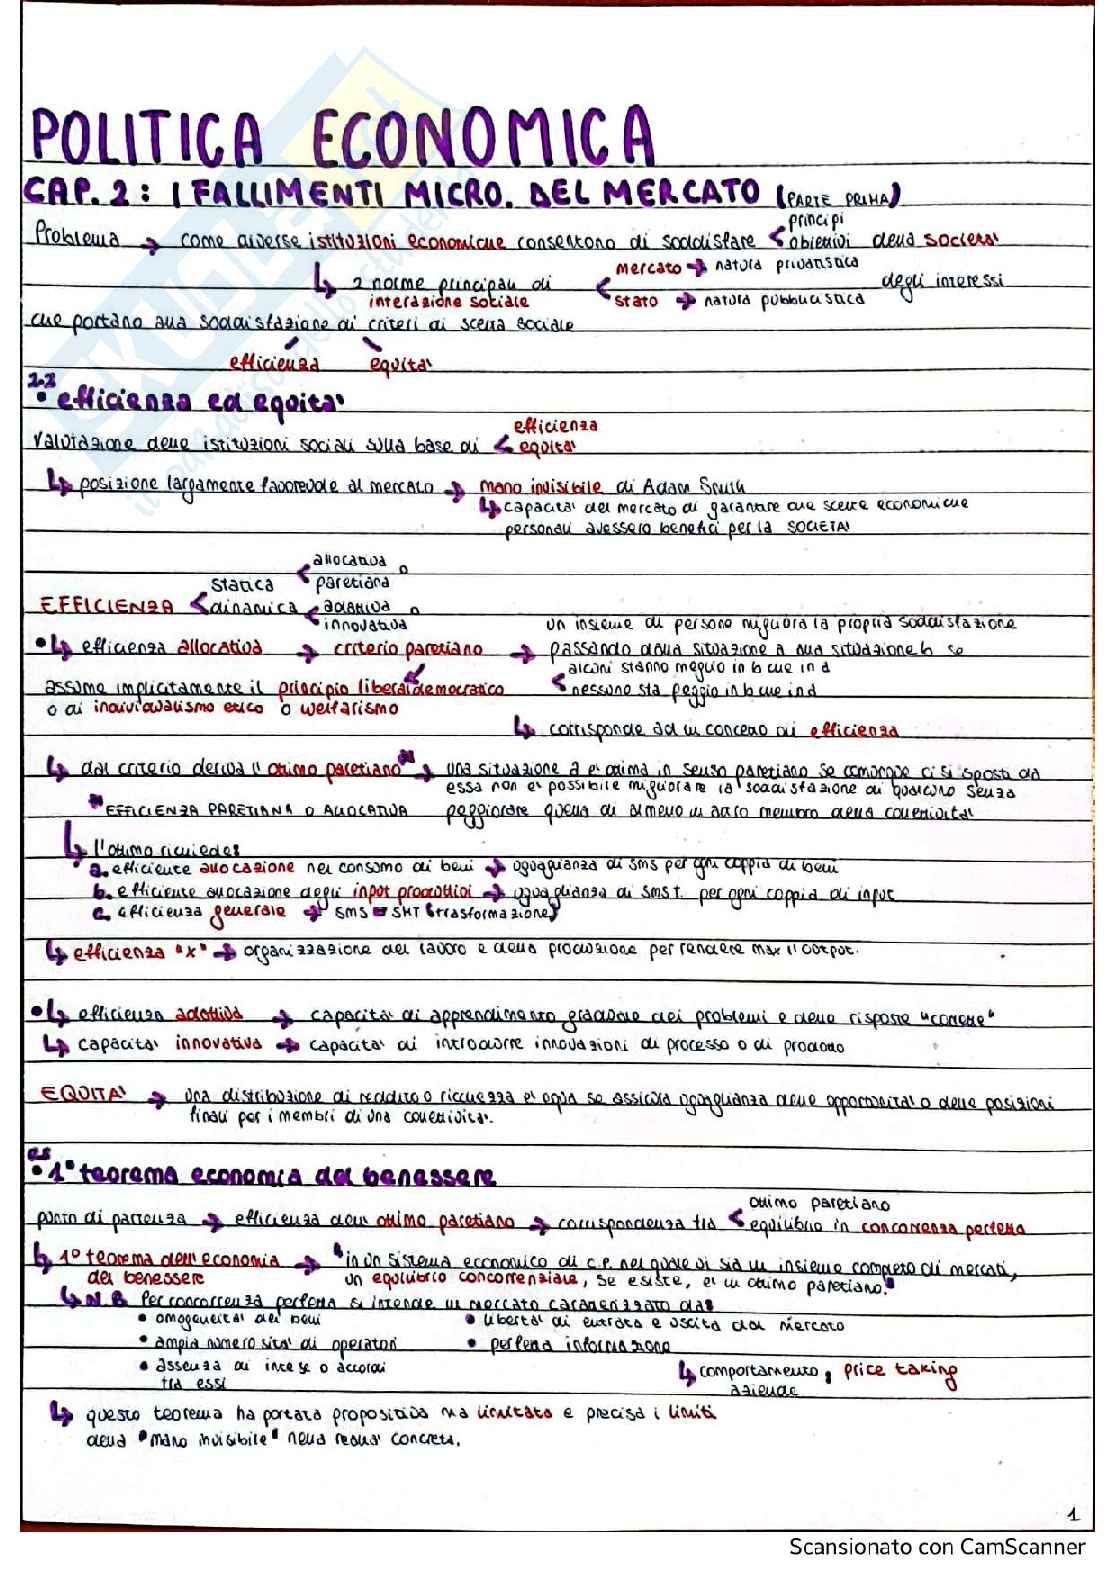 POLITICA ECONOMICA
CAP. 2: I FALLIMENTI MICRO. DEL MERCATO (PARTE PRIMA)
Problema → come diverse istituzioni economiche consentono di soddisfare < principi
obiettivi della società
↳ 2 norme principali di interazione sociale < mercato → natura privatistica
stato → natura pubblicistica
degli interessi
che portano alla soddisfazione di criteri di scelta sociale
efficienza equità
2.2
• efficienza ed equità
Valutazione delle istituzioni sociali sulla base di < efficienza
equità
↳ posizione largamente favorevole al mercato → mano invisibile di Adam Smith
↳ capacità del mercato di garantire che scelte economiche
personali avessero benefici per la SOCIETÀ
EFFICIENZA < statica < allocativa o
paretiana
dinamica < adattiva o
innovativa
• ↳ efficienza allocativa → criterio paretiano → un insieme di persone migliora la propria soddisfazione
passando dalla situazione a alla situazione b se
< alcuni stanno meglio in b che in a
nessuno sta peggio in b che in a
assume implicitamente il principio liberaldemocratico
o di individualismo etico o welfarismo
↳ corrisponde ad un concetto di efficienza
↳ dal criterio deriva l'ottimo paretiano* → una situazione a è ottima in senso paretiano se comunque ci si sposti da
essa non è possibile migliorare la soddisfazione di qualcuno senza
peggiorare quella di almeno un altro membro della collettività
* EFFICIENZA PARETIANA O ALLOCATIVA
↳ l'ottimo richiede:
a. efficiente allocazione nel consumo di beni → uguaglianza di sms per ogni coppia di beni
b. efficiente allocazione degli input produttivi → uguaglianza di smst. per ogni coppia di input
c. efficienza generale → SMS = SMT (trasformazione)
↳ efficienza "x" → organizzazione del lavoro e della produzione per rendere max l'output.
• ↳ efficienza adattiva → capacità di apprendimento graduale dei problemi e delle risposte "corrette"
↳ capacità innovativa → capacità di introdurre innovazioni di processo o di prodotto
EQUITÀ → una distribuzione di reddito o ricchezza è equa se assicura uguaglianza delle opportunità o delle posizioni
finali per i membri di una collettività.
• 1° teorema economia del benessere
punto di partenza → efficienza dell'ottimo paretiano → corrispondenza tra < ottimo paretiano
equilibrio in concorrenza perfetta
↳ 1° teorema dell'economia del benessere → "in un sistema economico di c.p. nel quale vi sia un insieme completo di mercati,
un equilibrio concorrenziale, se esiste, è un ottimo paretiano."
↳ N.B. Per concorrenza perfetta si intende un mercato caratterizzato da:
• omogeneità dei beni
• ampia numerosità di operatori
• assenza di intese o accordi
tra essi
• libertà di entrata e uscita dal mercato
• perfetta informazione
↳ comportamento aziende: price taking
↳ questo teorema ha portata propositiva ma limitata e precisa i limiti
della "mano invisibile" nella realtà concreta.
1
Scansionato con CamScanner